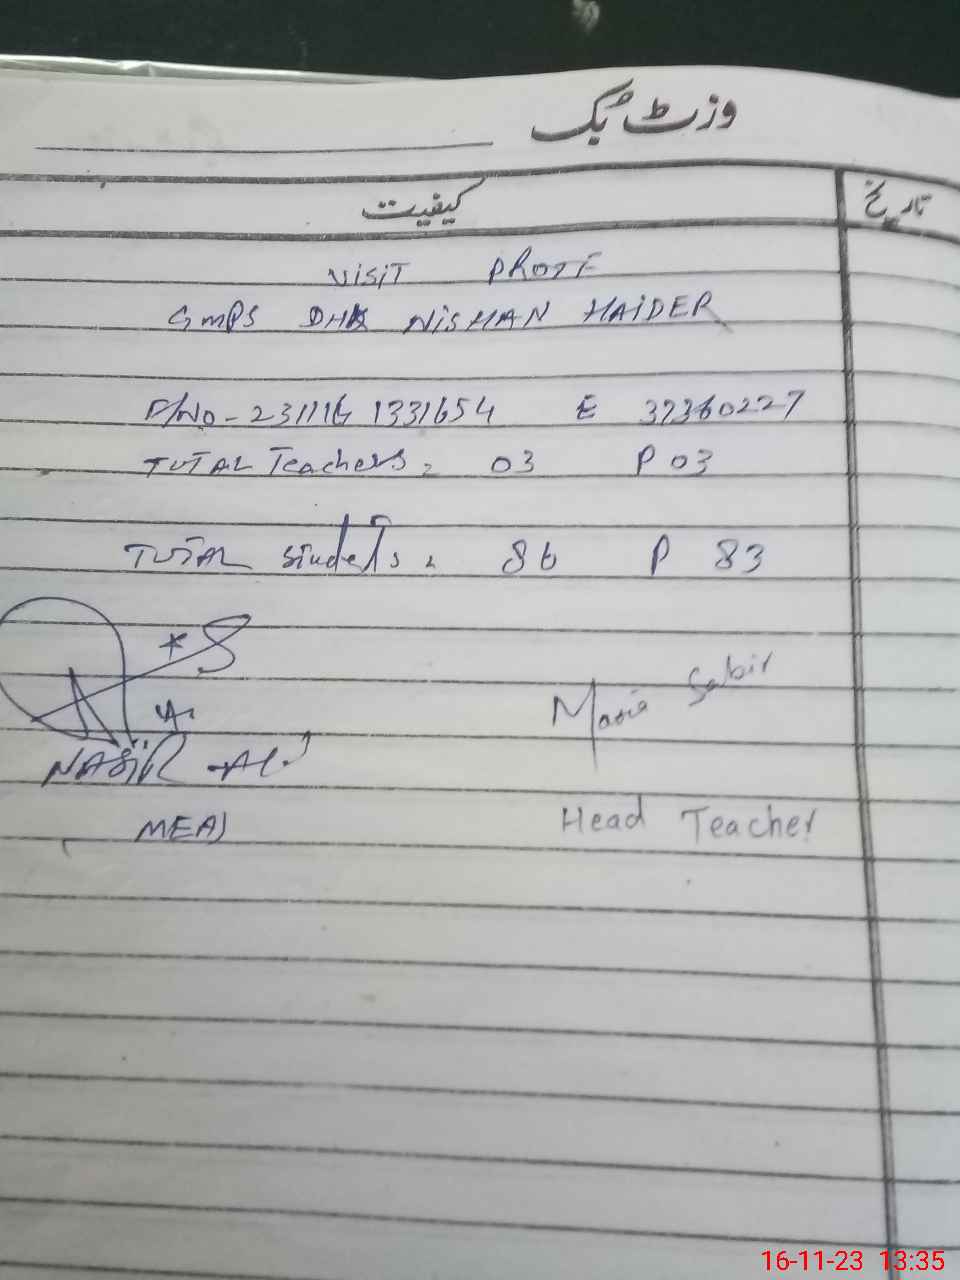 وزٹ بک
کیفیت
تاریخ
VISIT PROFE
GMPS DHK NISHAN HAIDER
P/NO - 231116 1331654 E 37360227
TOTAL Teachers = 03 P 03
TOTAL Students = 86 P 83
Maria Sabir
NASIR ALI
MEA
Head Teacher
16-11-23 13:35